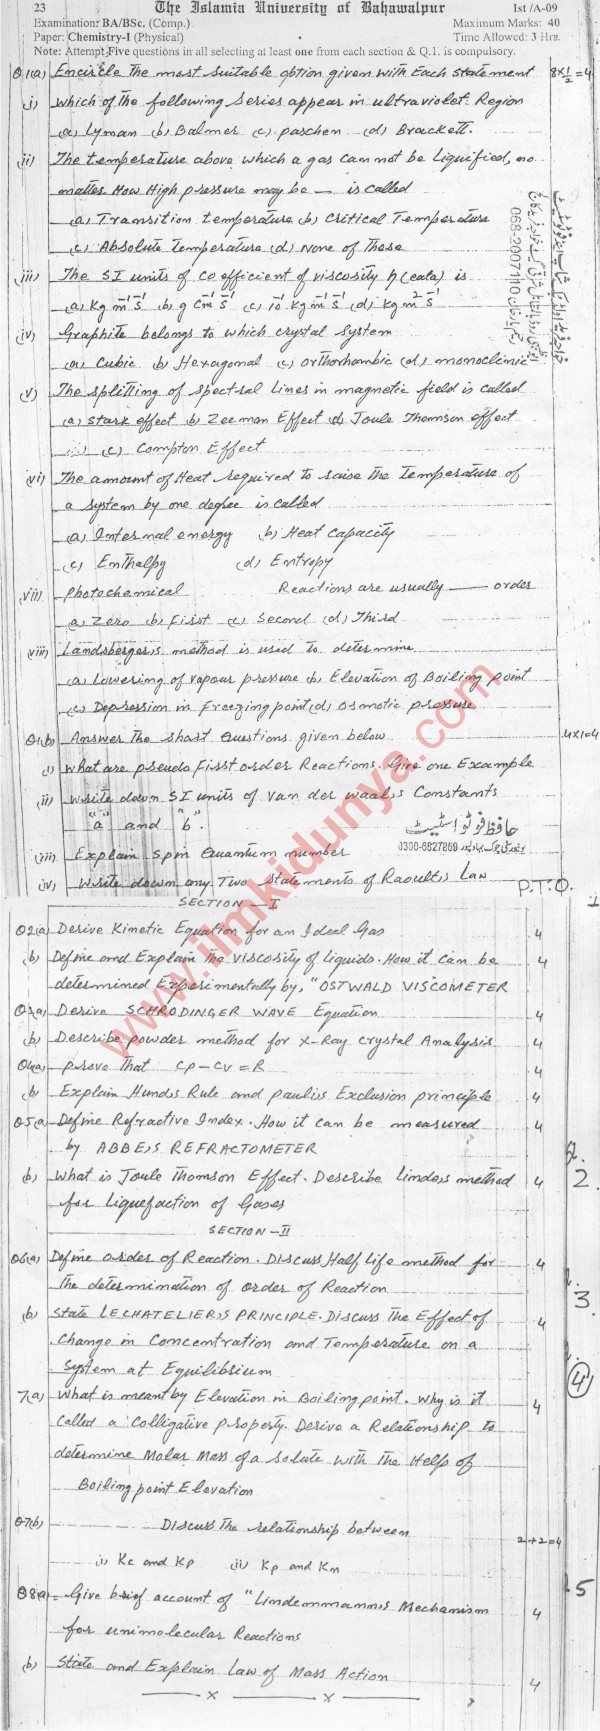 23 The Islamia University of Bahawalpur Ist /A-09
Examination: BA/BSc. (Comp.) Maximum Marks: 40
Paper: Chemistry-I (Physical) Time Allowed: 3 Hrs.
Note: Attempt Five questions in all selecting at least one from each section & Q.1. is compulsory.
Q1(a) Encircle The most suitable option given with Each statement 8×½=4
i) which of the following series appear in ultraviolet Region
(a) Lyman (b) Balmer (c) paschen (d) Brackett.
(ii) The temperature above which a gas can not be Liquified, no
matter How High pressure may be — is called
(a) Transition temperature (b) Critical Temperature
(c) Absolute Temperature (d) None of These
(iii) The SI units of co efficient of viscosity η (eata) is
(a) Kg m⁻¹ s⁻¹ (b) g cm⁻¹ s⁻¹ (c) 10⁻¹ kg m⁻¹ s⁻¹ (d) kg m⁻² s⁻¹
(iv) Graphite belongs to which crystal system
(a) Cubic (b) Hexagonal (c) orthorhombic (d) monoclinic
(v) The splitting of spectral Lines in magnetic field is called
(a) stark effect (b) Zeeman Effect (d) Joule Thomson effect
(c) Compton Effect
(vi) The amount of Heat required to raise The temperature of
a system by one degree is called
(a) Internal energy (b) Heat capacity
(c) Enthalpy (d) Entropy
vii) Photochemical Reactions are usually — order
(a) Zero (b) First (c) Second (d) Third
(viii) Landsberger,s method is used to determine
(a) Lowering of vapour pressure (b) Elevation of Boiling point
(c) Depression in Freezing point (d) Osmotic pressure
Q1(b) Answer The short Questions given below 4×1=4
(i) What are pseudo First order Reactions. Give one Example
(ii) Write down SI units of van der waal,s Constants
"a" and "b".
حافظ فوٹو اسٹیٹ
0300-6827869
(iii) Explain Spin Quantum number
(iv) Write down any Two statements of Raoult,s Law
P.T.O.
068-2007110
www.ilmkidunya.com
SECTION - I
Q2(a) Derive Kinetic Equation for an Ideal Gas 4
(b) Define and Explain The Viscosity of Liquids. How it can be 4
determined Experimentally by, "OSTWALD VISCOMETER
Q3(a) Derive SCHRODINGER WAVE Equation 4
(b) Describe powder method for X-Ray Crystal Analysis 4
Q4(a) Prove that Cp - Cv = R 4
(b) Explain Hund,s Rule and Pauli,s Exclusion principle 4
Q5(a) Define Refractive Index. How it can be measured 4
by ABBE,S REFRACTOMETER
(b) What is Joule Thomson Effect. Describe Linde,s method 4
for Liquefaction of Gases
2.
SECTION - II
Q6(a) Define order of Reaction. Discuss Half Life method for 4
The determination of order of Reaction
3
(b) State LECHATELIER,S PRINCIPLE. Discuss The Effect of 4
Change in Concentration and Temperature on a
System at Equilibrium
4
7(a) What is meant by Elevation in Boiling point. Why is it 4
called a Colligative property. Derive a Relationship to
determine Molar Mass of a solute with The Help of
Boiling point Elevation
Q7(b) Discuss The relationship between 2+2=4
i) Kc and Kp ii) Kp and Km
5
Q8(a) Give brief account of "Lindemmann,s Mechanism 4
for unimolecular Reactions
(b) State and Explain Law of Mass Action 4